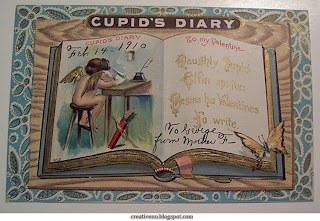 CUPID'S DIARY
CUPID'S DIARY
Feb. 14 - 1910
To my Valentine
Naughty Cupid
Begins his Valentines
To write
To George
from Mother F-
creativenn.blogspot.com